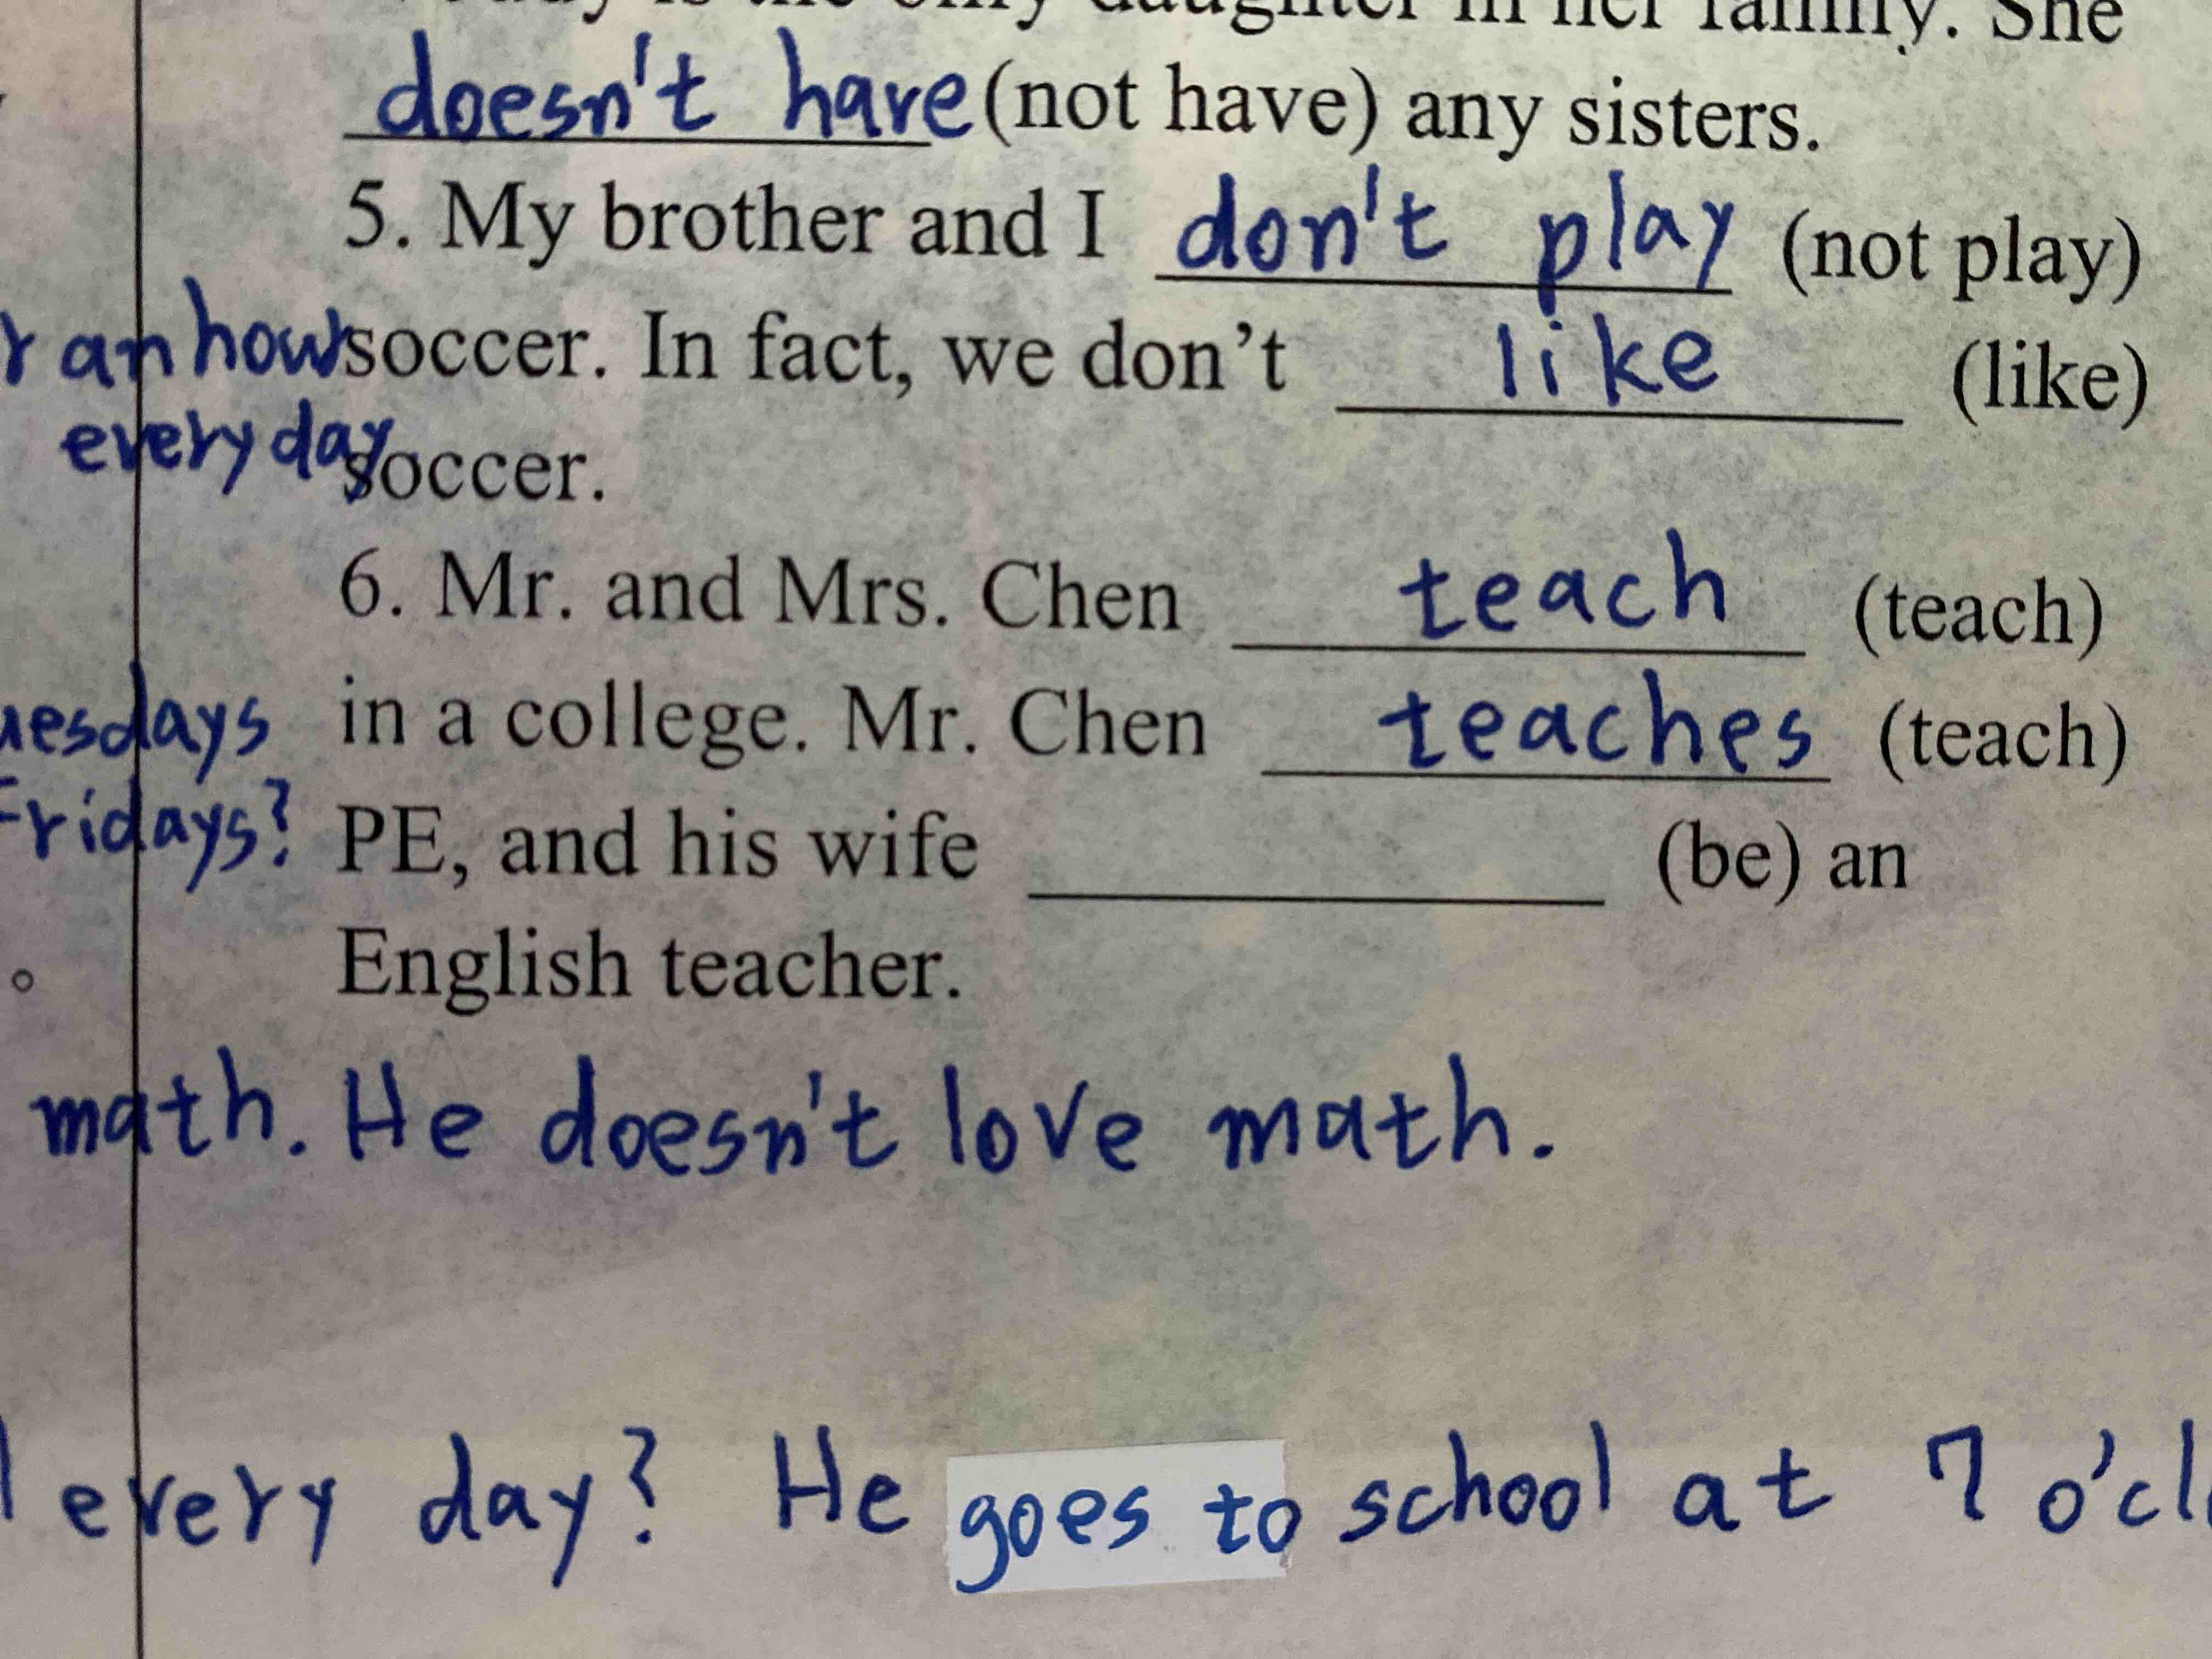 is the only daughter in her family. She
doesn't have (not have) any sisters.
5. My brother and I don't play (not play)
an hour soccer. In fact, we don't like (like)
every day soccer.
6. Mr. and Mrs. Chen teach (teach)
in a college. Mr. Chen teaches (teach)
Fridays? PE, and his wife ________ (be) an
English teacher.
math. He doesn't love math.
every day? He goes to school at 7